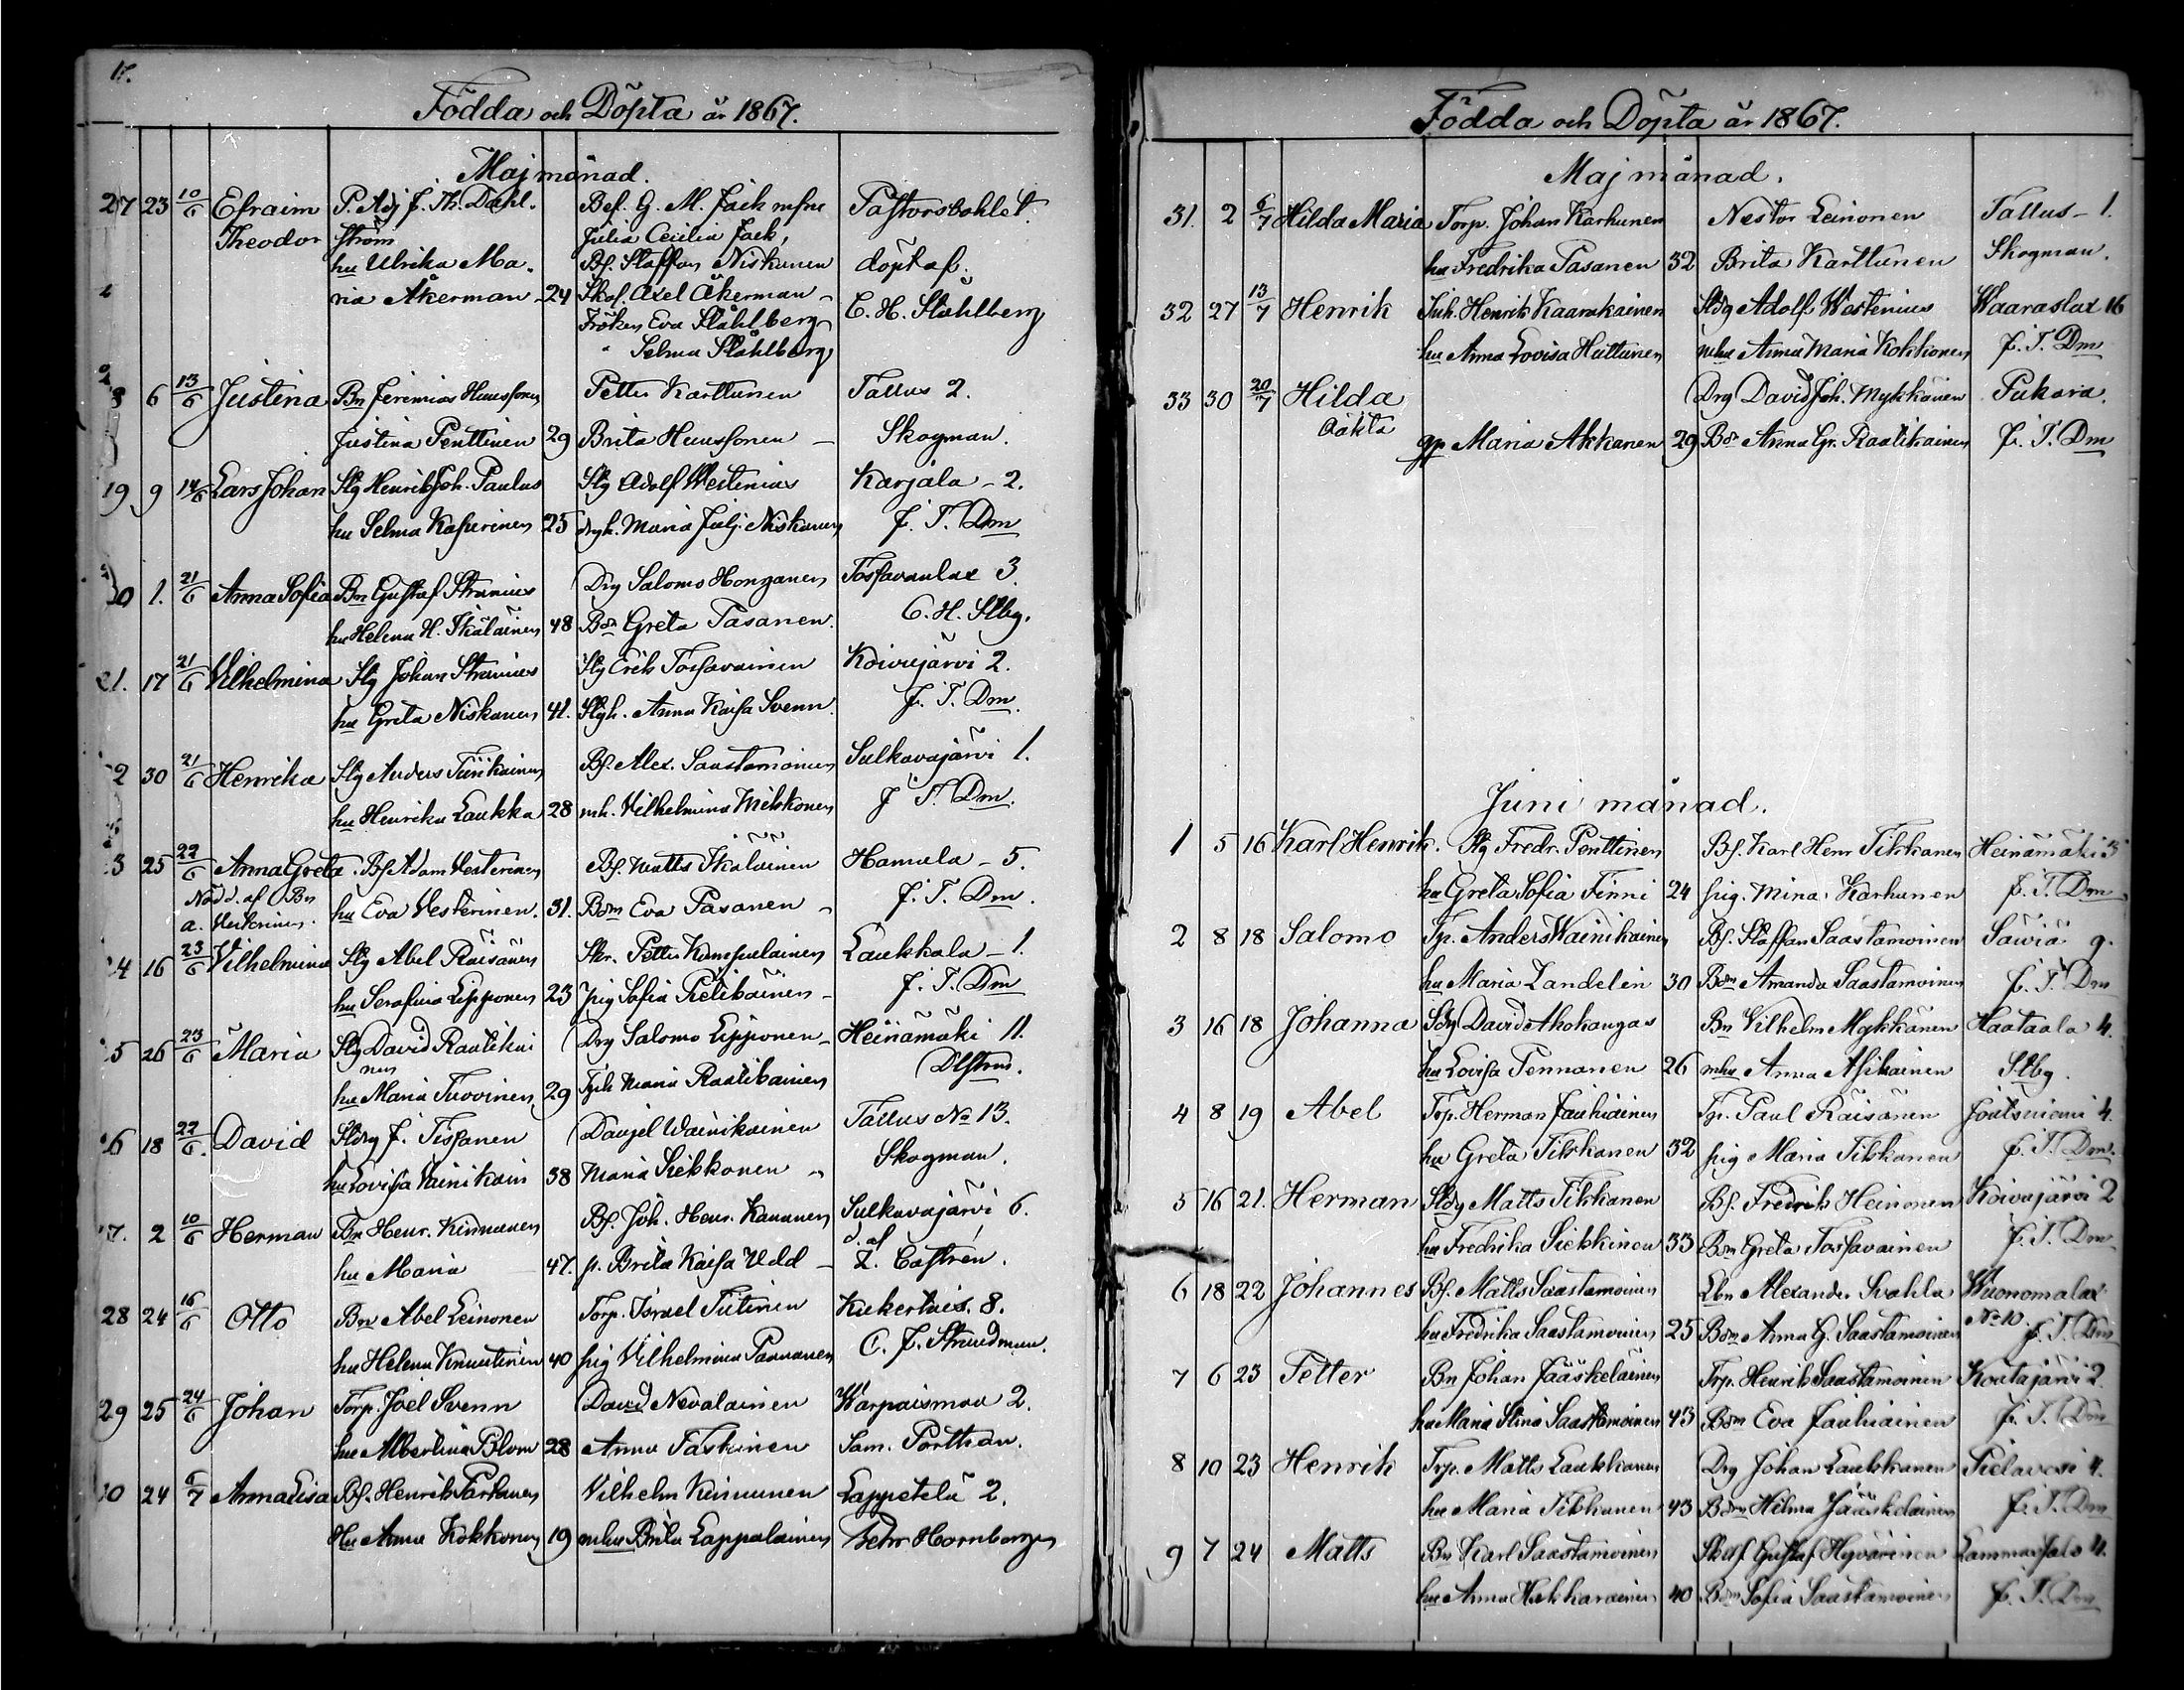 17.
Födda och Döpta år 1867.
Maj månad.
27 23 10/6 Efraim P. Adj J. Th. Dahl- Bef. G. M. Jack mfru Pastorsbohlet.
Theodor ström Julia Cecilia Jack,
hu Ulrika Ma- Bf. Staffan Niskanen döpt af.
ria Åkerman 24 Skof. Axel Åkerman C. H. Ståhlberg
Fröken Eva Ståhlberg
" Selma Ståhlberg
8 6 13/6 Justina Bn Jeremias Huussonen Petter Karttunen Tallus 2.
Justina Penttinen 29 Brita Huussonen Skogman.
19 9 14/6 Lars Johan Slg Henrik Joh. Paulus Slg Adolf Westenius Karjala 2.
hu Selma Kasurinen 25 drgh. Maria Julj. Niskanen J. T. Dm
20 1. 21/6 Anna Sofia Bn Gustaf Stranius Drg Salomo Honganen Tossavanlax 3.
hu Helena H. Ikäläinen 48 Bdn Greta Pasanen. C. H. Stbg.
21. 17 21/6 Vilhelmina Slg Johan Stranius Slg Erik Tossavainen Koivujärvi 2.
hu Greta Niskanen 41. Slgh. Anna Kaisa Svenn J. T. Dm.
2 30 21/6 Henrika Slg Anders Tiirikainen Bf. Alex. Saastamoinen Sulkavajärvi 1.
hu Henrika Laukka 28 mh. Vilhelmina Mikkonen J T. Dm.
3 25 22/6 Anna Greta. Bf Adam Vesterinen Bf. Matts Ikäläinen Hamula - 5.
Nöd d. af Bn hu Eva Vesterinen. 31. Bdm Eva Pasanen J. T. Dm.
a. Vesterinen.
4 16 23/6 Vilhelmina Slg Abel Räisänen Skr. Petter Kumpulainen Laukkala - 1.
hu Serafina Lipponen 23 pig Sofia Pielikäinen J. T. Dm
5 26 23/6 Maria Slg David Raatikai Drg Salomo Lipponen Heinämäki 11.
nen
hu Maria Tuovinen 29 Tjh Maria Raatikainen Dlstrm.
6 18 22/6. David Sldrg J. Tissanen Daniel Wainikainen Tallus No 13.
hu Lovisa Vainikain 38 Maria Siekkonen Skogman.
7. 2 10/6 Herman Bn Henr. Kinnunen Bf. Joh. Henr. Kananen Sulkavajärvi 6.
d. af
hu Maria 47. p. Brita Kaisa Udd Z. Castrén.
28 24 16/6 Otto Bn Abel Leinonen Torp. Israel Tiitinen Kukertais. 8.
hu Helena Knuutinen 40 pig Vilhelmina Paananen C. J. Strandman.
29 25 24/6 Johan Torp. Joel Svenn David Nevalainen Karpaismaa 2.
hu Albertina Blom 28 Anna Taskinen Sam. Porthan.
30 24 6/7 Anna Lisa Bf. Henrik Parkanen Vilhelm Kinnunen Lappetelä 2.
Hu Anna Kokkonen 19 mhu Brita Lappalainen Hornborgen
Födda och Döpta år 1867.
Maj månad.
31. 2 6/7 Hilda Maria Torp. Johan Karhunen Nestor Leinonen Tallus - 1.
hu Fredrika Pasanen 32 Brita Karttunen Skogman.
32 27 13/7 Henrik Inh. Henrik Kaarakainen Sldg Adolf Westenius Waaraslax 16
hu Anna Lovisa Huttunen mhu Anna Maria Kokkonen J. T. Dm
33 30 20/7 Hilda Drg David Joh. Mykkänen Pukara.
Oäkta
qp Maria Akkanen 29 Bdr Anna Gr. Raatikainen J. T. Dm
Juni månad.
1 5 16 Karl Henrik. Slg Fredr. Penttinen Bf. Karl Henr Tikkanen Heinämäki 3
hu Greta Sofia Finni 24 pig. Mina Karhunen J. T. Dm
2 8 18 Salomo Tp. Anders Wainikainen Bf. Staffan Saastamoinen Säviä 9.
hu Maria Zandelin 30 Bdm Amanda Saastamoinen J. T. Dm
3 16 18 Johanna Sldg David Ahokangas Bn Vilhelm Mykkänen Haataala 4.
hu Lovisa Pennanen 26 mhu Anna Asikainen Stbg.
4 8 19 Abel Torp. Herman Jauhiainen Tp. Paul Räisänen Joutsniemi 4.
hu Greta Tikkanen 32 pig Maria Tikkanen J. T. Dm.
5 16 21. Herman Sldg Matts Tikkanen Bf. Fredrik Heinonen Koivujärvi 2
hu Fredrika Siekkinen 33 Bdm Greta Tossavainen J. T. Dm
6 18 22 Johannes Bf. Matts Saastamoinen Lbn Alexander Svahla Wuonomalax
hu Fredrika Saastamoinen 25 Bdm Anna G. Saastamoinen No 10. J. T. Dm
7 6 23 Petter Bn Johan Jääskeläinen Trp. Henrik Saastamoinen Koutajärvi 2.
hu Maria Stina Saastamoinen 43 Bdm Eva Jauhiainen J. T. Dm
8 10 23 Henrik Trp. Matts Laukkanen Drg Johan Laukkanen Pielavesi 4.
hu Maria Tikkanen 43 Bdm Hilma Jääskeläinen J. T. Dm
9 7 24 Matts Bn Karl Saastamoinen Skolf Gustaf Hyvärinen Lammassalo 4.
hu Anna Hakkarainen 40 Bdm Sofia Saastamoinen J. T. Dm